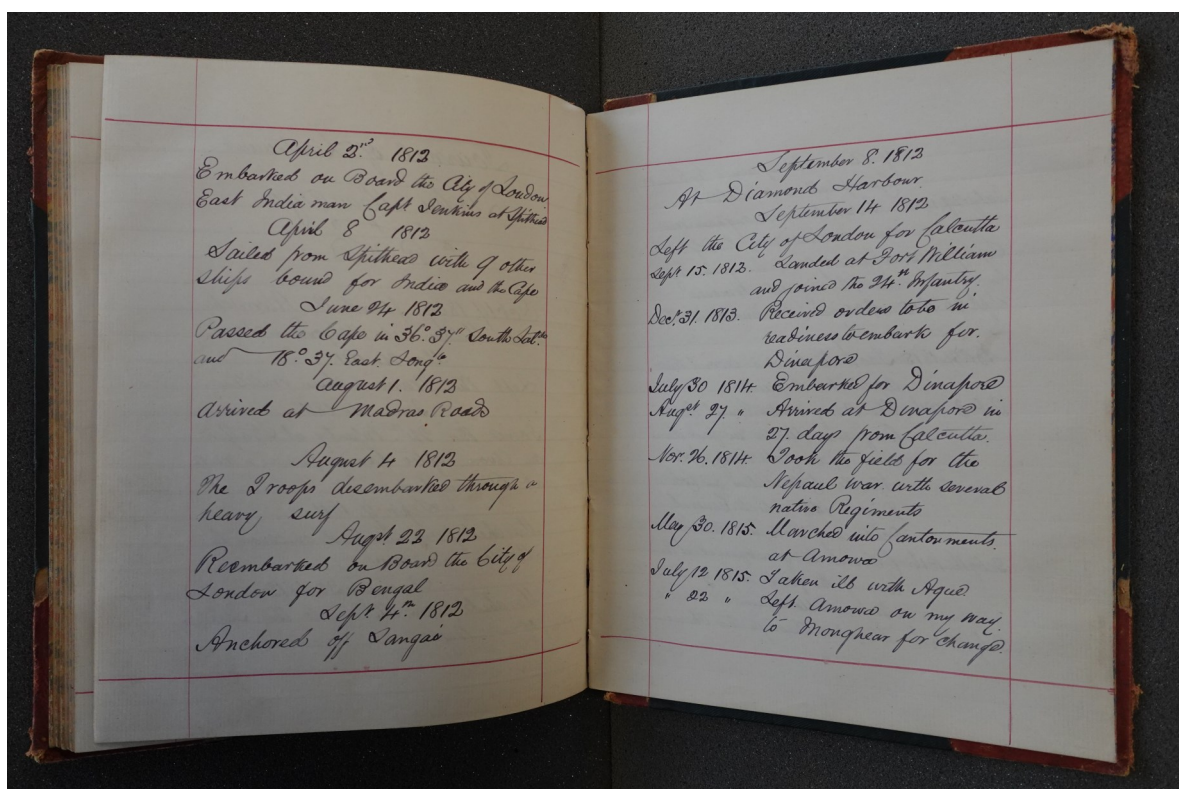 April 2nd. 1812
Embarked on Board the City of London
East India man Capt Jenkins at Spithead
April 8 1812
Sailed from Spithead with 9 other
ships bound for India and the Cape
June 24 1812
Passed the Cape in 36° 37" South Latde
and 18° 37. East. Longe.
August 1. 1812
Arrived at Madras Roads
August 4 1812
The Troops disembarked through a
heavy surf
Augst. 22 1812
Reembarked on Board the City of
London for Bengal
Septr. 4th. 1812
Anchored off Sangai
September 8. 1812
At Diamond Harbour.
September 14 1812
Left the City of London for Calcutta
Septr. 15. 1812. Landed at Fort William
and joined the 24th. Infantry.
Decr. 31. 1813. Received orders to be in
readiness to embark for.
Dinapore
July 30 1814. Embarked for Dinapore
Augst. 27. " Arrived at Dinapore in
27. days from Calcutta.
Nov. 26. 1814. Took the field for the
Nepaul war with several
native Regiments
May 30. 1815. Marched into Cantonments.
at Amowa
July 12 1815. Taken ill with Ague
" 22 " Left Amowa on my way
to Monghear for change.